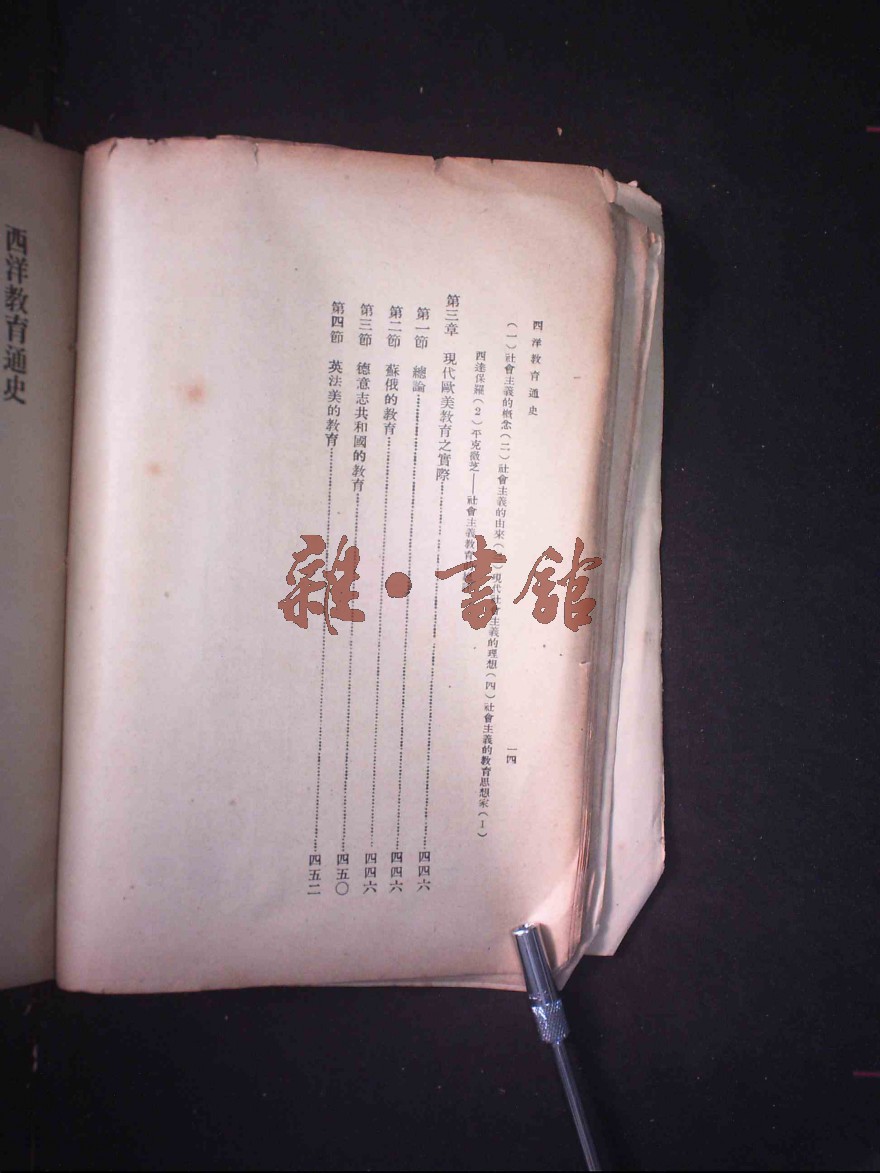 西洋教育通史 一四
（一）社會主義的概念（二）社會主義的由來（ ）現代社會主義的理想（四）社會主義的教育思想家（1）
西達保羅（2）平克微芝——社會主義教育
第三章 現代歐美教育之實際……四四六
第一節 總論……四四六
第二節 蘇俄的教育……四四六
第三節 德意志共和國的教育……四五〇
第四節 英法美的教育……四五二
西洋教育通史
雜·書館